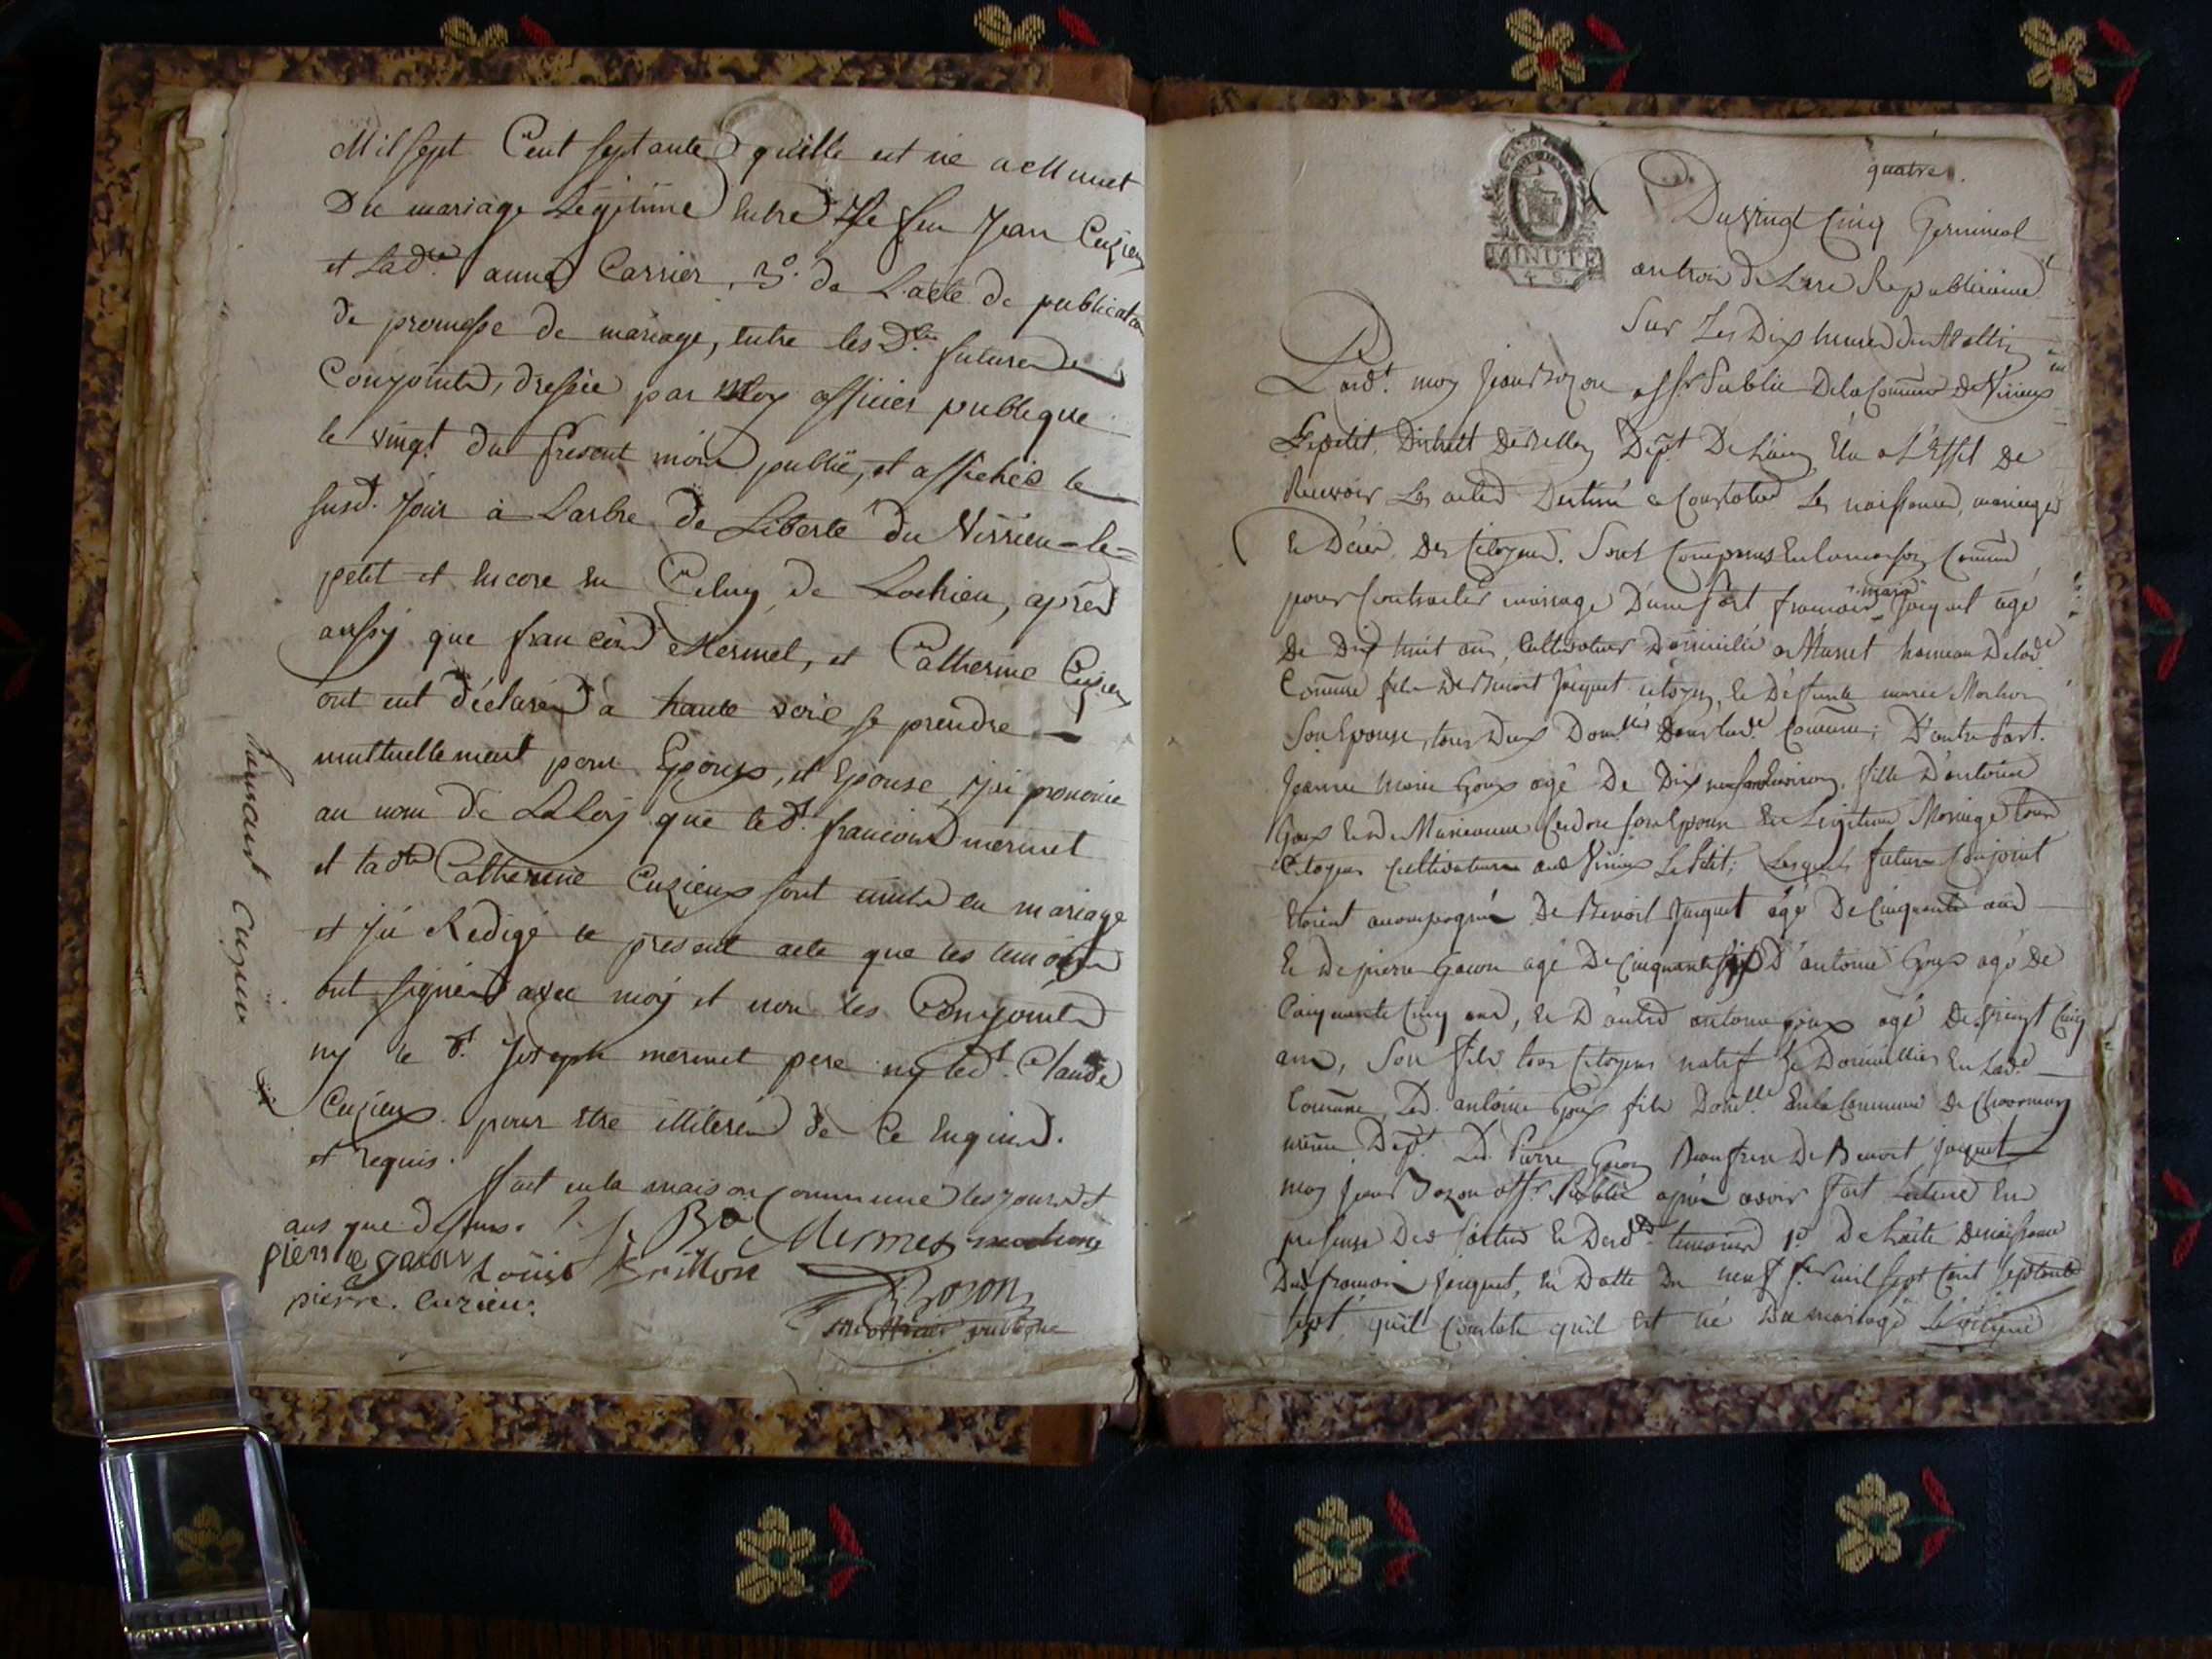 Mil sept Cent septante quille est né a Munet
Du mariage Légitime Entre Le feu Jean Cuzieu
et Ladte anne Carrier, 3o. de L'acte de publication
de promesse de mariage, entre les Dits futures
Conjoints, dressée par Moy officier publique
le vingt du present mois publié, et affichés le
susd. Jour à L'arbre de Liberté du Virrieu-le-
petit et Encore En Celuy de Lochieu, après
aussy que francois Mermet, et Catherine Cuzieu
ont eut déclarés à haute voix se prendre
muttuellement pour Epoux, et Epouse, J'ai prononcé
au nom de La Loy que led. francois mermet
et ladte Catherine Cuzieux sont unis en mariage
et J'ai Redigé le présent acte que les temoins
ont signés avec moy et non les Conjoints
ny le d. Joseph mermet pere ny led. Claude
Cuzieux pour être illiterés de Ce Enquis.
et requis.
fait en la maison Commune les jours et
ans que dessus.
Mermet
pierre gacon Louis Brillon
pierre. Cuzieu.
Bozon
officier publique
Cuzieu
quatre.
Du vingt Cinq Germinal
an trois de L'ere Republicaine
Sur Les Dix heures du Mattin
Pard. moy Jean Bozon off. Public De la Commune de Virieux
Le petit, District de Belley Dept. De L'ain, Elu a L'Effet de
Recevoir Les actes Destiné a Constater Les naissances, mariages
& Décès Des Citoyens. Sont Comparus En la maison Commune
pour Contracter mariage D'une part francois Jacquet agé
marie
De Dix huit ans, Cultivateur Domicilié a Munet hameau De lade
Commune fils De Benoit Jacquet citoyen, & Deffunte marie
Son Epouse, tous Deux Dom.liés Dans lade Commune; D'autre Part.
Jeanne Marie Goux agé De Dix neuf ans Environ, fille D'antoine
Goux & de Marianne Cudon son Epouse En Legitime Mariage tous
Citoyens Cultivateurs aud Virieux Le Petit; Lesquels futurs Conjoint
Etoient accompagnés De Benoit Jacquet agé De Cinquante ans
& De pierre Gacon agé De Cinquante D'antoine Goux agé De
Cinquante Cinq ans, & D'autre antoine goux agé De vingt Cinq
ans, Son fils tous Citoyens natif & Domicilliés En Lade
Commune, Led. antoine Goux fils Domlié En la Commune De
même Dept. Led. Pierre Gacon Beaufrere De Benoit jacquet
moy Jean Bozon off. Public après avoir fait Lecture En
presence Des parties & Desd. temoins 1o. De L'acte De naissance
Dud francois Jacquet, En Datte Du neuf mil sept Cent septante
sept, qu'il Constate qu'il Est né Du mariage Légitime
MINUTE